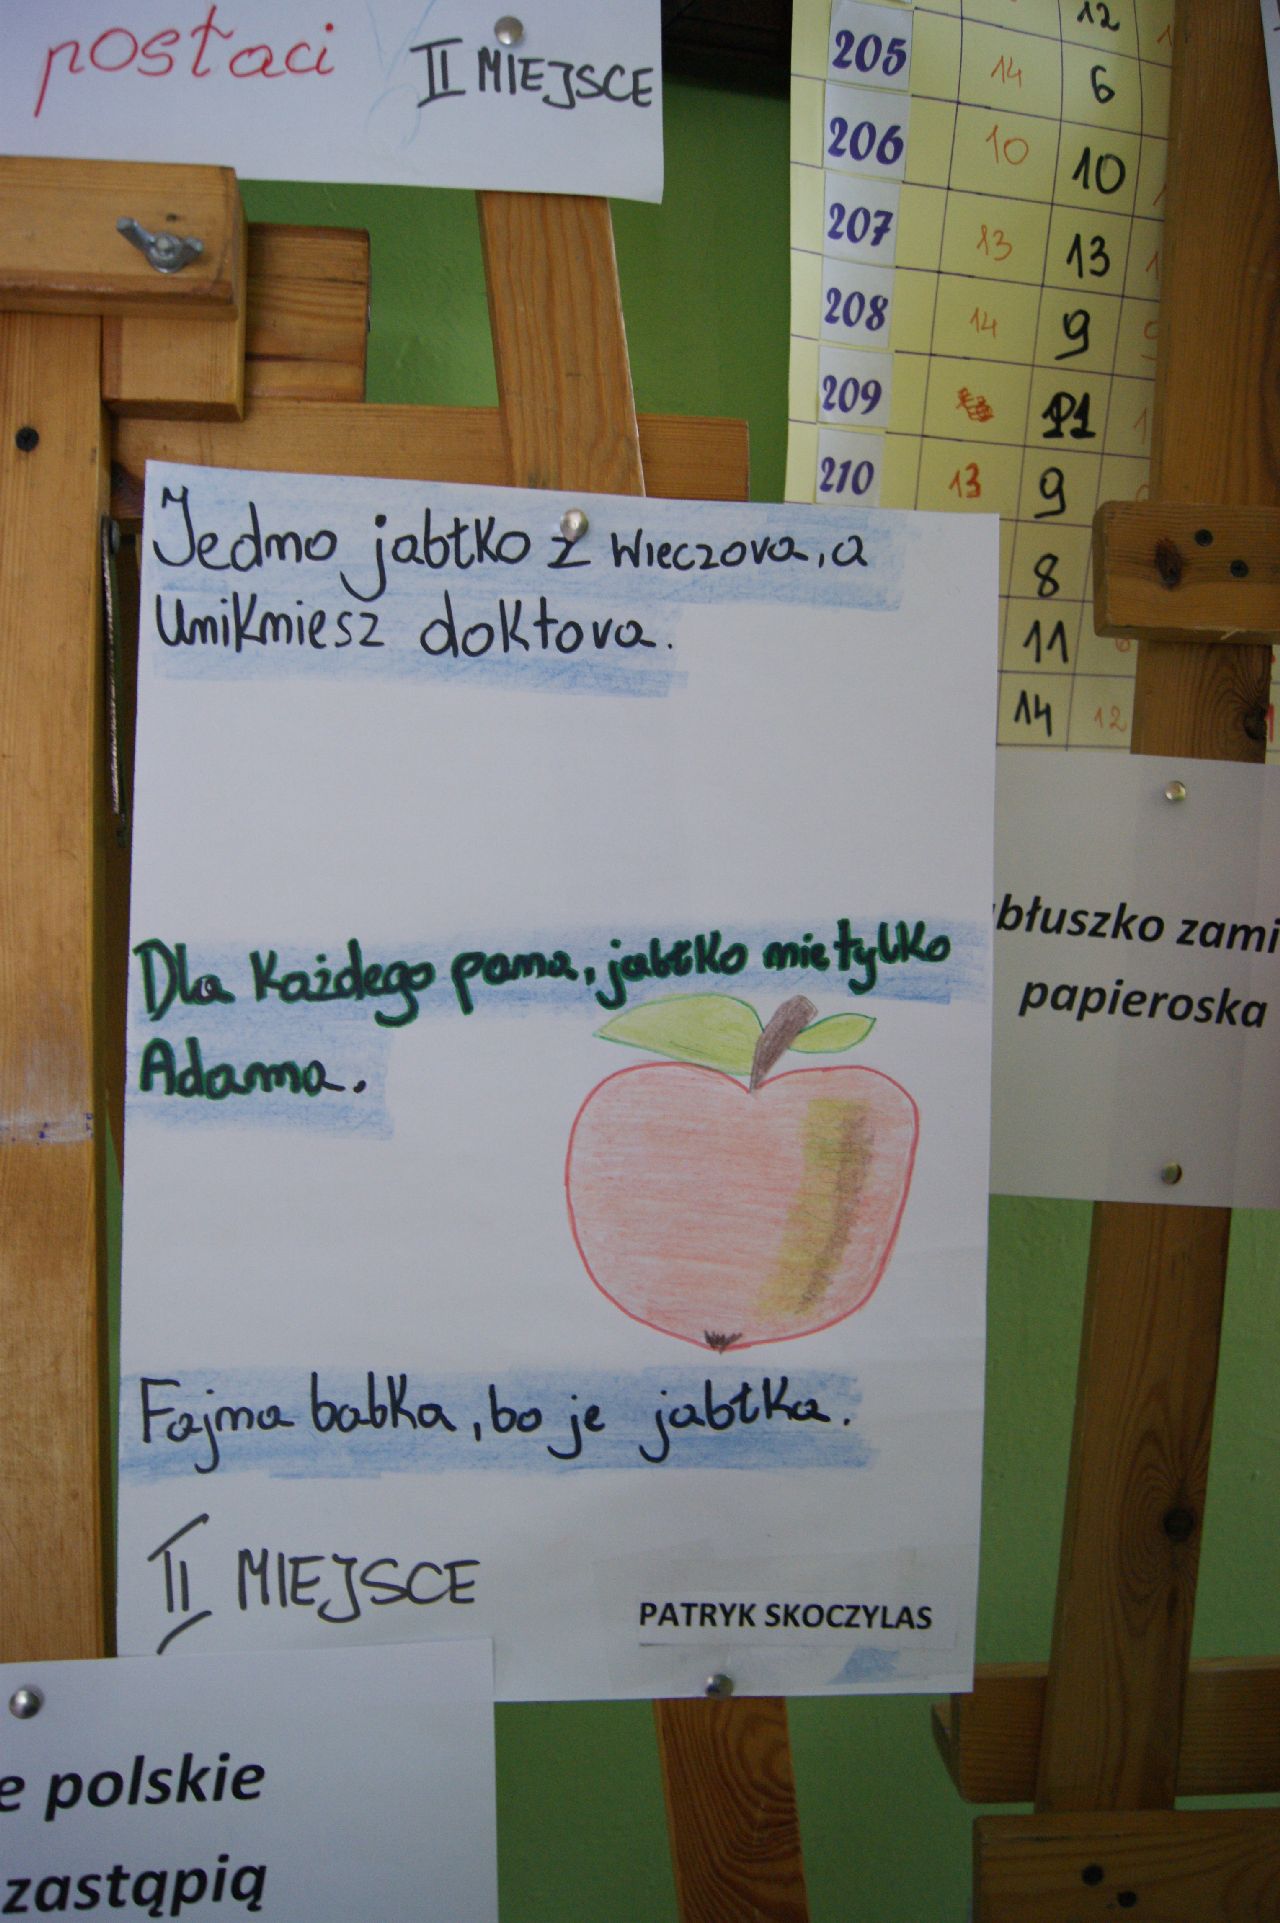 postaci
II MIEJSCE
205 14 6
206 10 10
207 13 13
208 14 9
209 11
210 13 9
8
11
14 12
12
Jedno jabłko z wieczora, a
unikniesz doktora.
Dla każdego pana, jabłko nie tylko
Adama.
Fajna babka, bo je jabłka.
II MIEJSCE
PATRYK SKOCZYLAS
błuszko zami
papieroska
e polskie
zastąpią